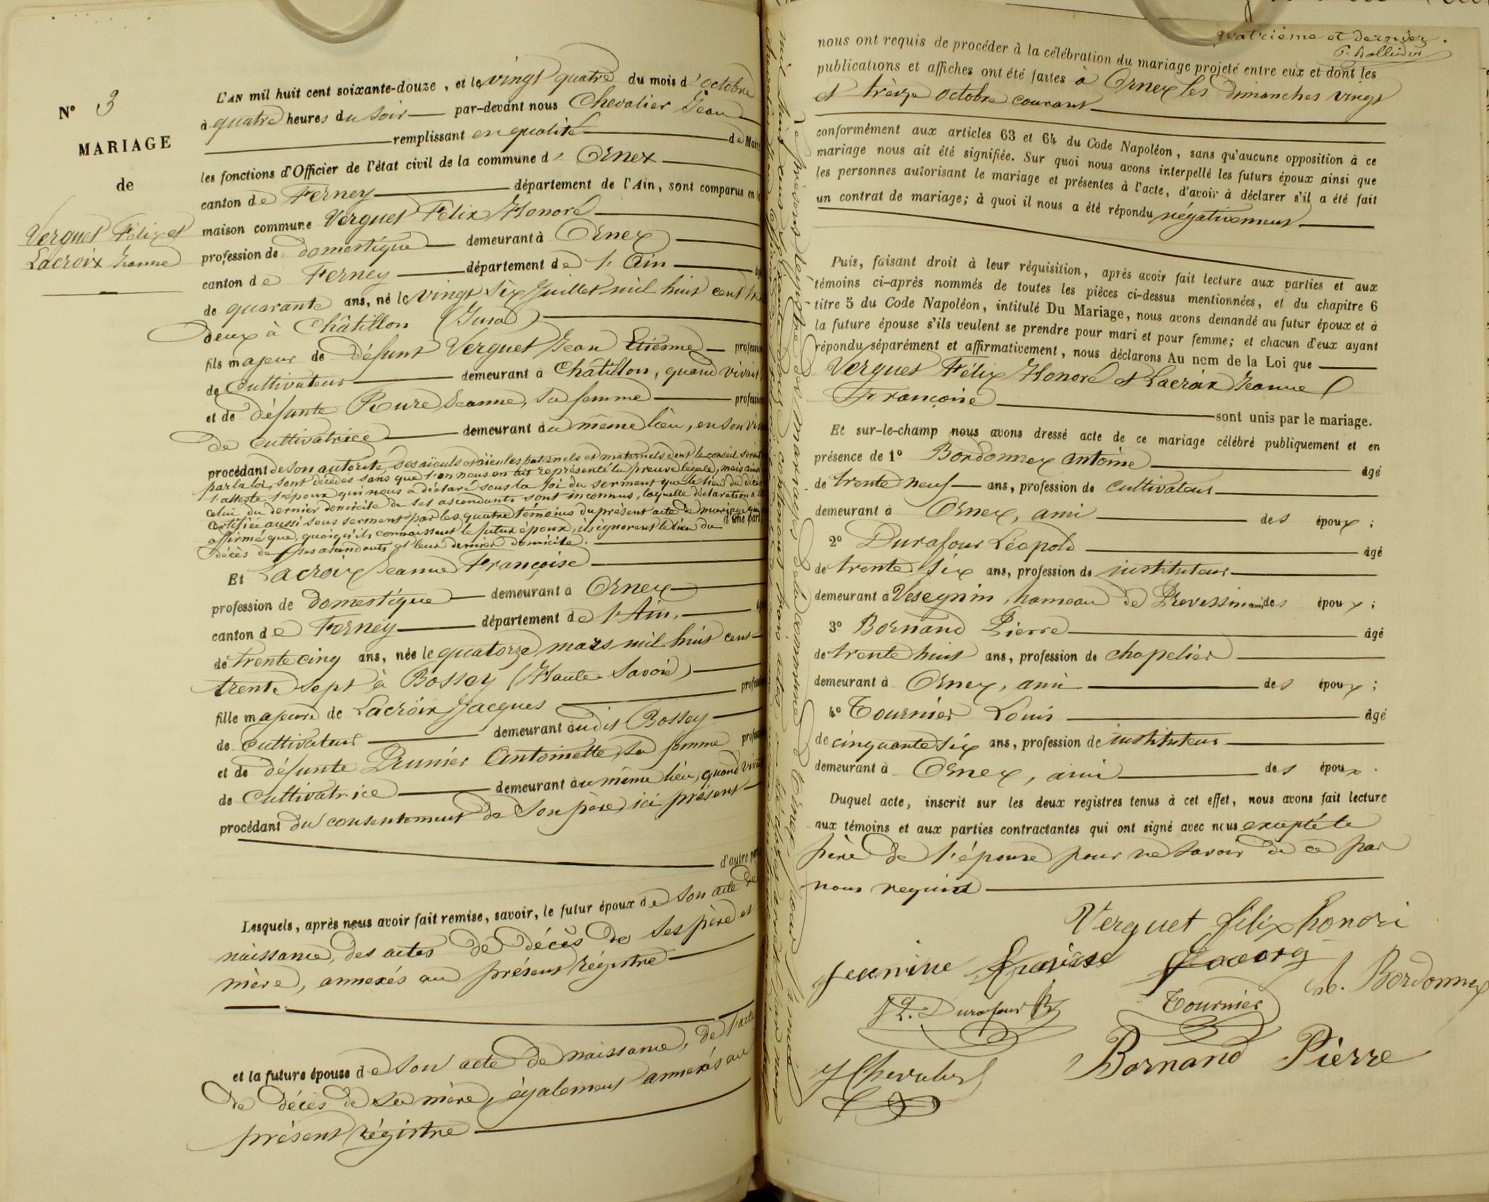 N° 3
MARIAGE
de
Verguet Félix et
Lacroix Jeanne
L'AN mil huit cent soixante-douze, et le vingt quatre du mois d'octobre
à quatre heures du soir par-devant nous Chevalier Jean
remplissant en qualité de Maire
les fonctions d'Officier de l'état civil de la commune d'Ornex
canton de Ferney département de l'Ain, sont comparus en la
maison commune Verguet Félix Honoré
profession de domestique demeurant à Ornex
canton de Ferney département de l'Ain
de quarante ans, né le vingt six Juillet mil huit cent trente
deux à Châtillon (Jura)
fils majeur de défunt Verguet Jean Etienne profession
de Cultivateur demeurant à Châtillon, quand vivait,
et de défunte Rure Jeanne, sa femme profession
de cultivatrice demeurant au même lieu, en son vivant
procédant de son autorité, ses aïeuls et aïeules paternels et maternels dont le conseil serait
par la loi, sont décédés sans que l'on nous en ait représenté la preuve légale, mais ainsi
l'atteste l'époux qui nous a déclaré sous la foi du serment que le lieu du décès
celui du dernier domicile de ses ascendants sont inconnus, laquelle déclaration a
certifiée aussi sous serment par les quatre témoins du présent acte de mariage qui
d'une part
affirmé que, quoiqu'ils connaissent le futur époux, ils ignorent le lieu du
décès de ses ascendants et leur dernier domicile.
Et Lacroix Jeanne Françoise
profession de domestique demeurant à Ornex
canton de Ferney département de l'Ain,
de trente cinq ans, née le quatorze mars mil huit cent
trente sept à Bossey (Haute Savoie)
fille majeure de Lacroix Jacques profession
de cultivateur demeurant audit Bossey
et de défunte Prunier Antoinette, sa femme profession
de cultivatrice demeurant au même lieu, quand vivait
procédant du consentement de son père, ici présent
d'autre part
Lesquels, après nous avoir fait remise, savoir, le futur époux de son acte de
naissance, des actes de décès de ses père et
mère, annexés au présent Régistre
et la future épouse de son acte de naissance, de l'acte
de décès de sa mère, également annexés au
présent Régistre
quatrième et dernier.
nous ont requis de procéder à la célébration du mariage projeté entre eux et dont les
publications et affiches ont été faites à Ornex les dimanches vingt
et treize octobre courant
conformément aux articles 63 et 64 du Code Napoléon, sans qu'aucune opposition à ce
mariage nous ait été signifiée. Sur quoi nous avons interpellé les futurs époux ainsi que
les personnes autorisant le mariage et présentes à l'acte, d'avoir à déclarer s'il a été fait
un contrat de mariage; à quoi il nous a été répondu négativement
Puis, faisant droit à leur réquisition, après avoir fait lecture aux parties et aux
témoins ci-après nommés de toutes les pièces ci-dessus mentionnées, et du chapitre 6
titre 5 du Code Napoléon, intitulé Du Mariage, nous avons demandé au futur époux et à
la future épouse s'ils veulent se prendre pour mari et pour femme; et chacun d'eux ayant
répondu séparément et affirmativement, nous déclarons Au nom de la Loi que
Verguet Félix Honoré et Lacroix Jeanne
Françoise sont unis par le mariage.
Et sur-le-champ nous avons dressé acte de ce mariage célébré publiquement et en
présence de 1° Bordonnex Antoine âgé
de trente neuf ans, profession de cultivateur
demeurant à Ornex, ami des époux;
2° Durafour Léopold âgé
de trente six ans, profession de instituteur
demeurant à Vesegnin, hameau de Prevessin ami des époux;
3° Bornand Pierre âgé
de trente huit ans, profession de chapelier
demeurant à Ornex, ami des époux;
4° Tournier Louis âgé
de cinquante six ans, profession de instituteur
demeurant à Ornex, ami des époux.
Duquel acte, inscrit sur les deux registres tenus à cet effet, nous avons fait lecture
aux témoins et aux parties contractantes qui ont signé avec nous excepté le
père de l'épouse pour ne savoir de ce par
nous requis
Verguet félix honoré
Jeanine A. Bordonnex
Durafour Tournier
J Chevalier Bornand Pierre